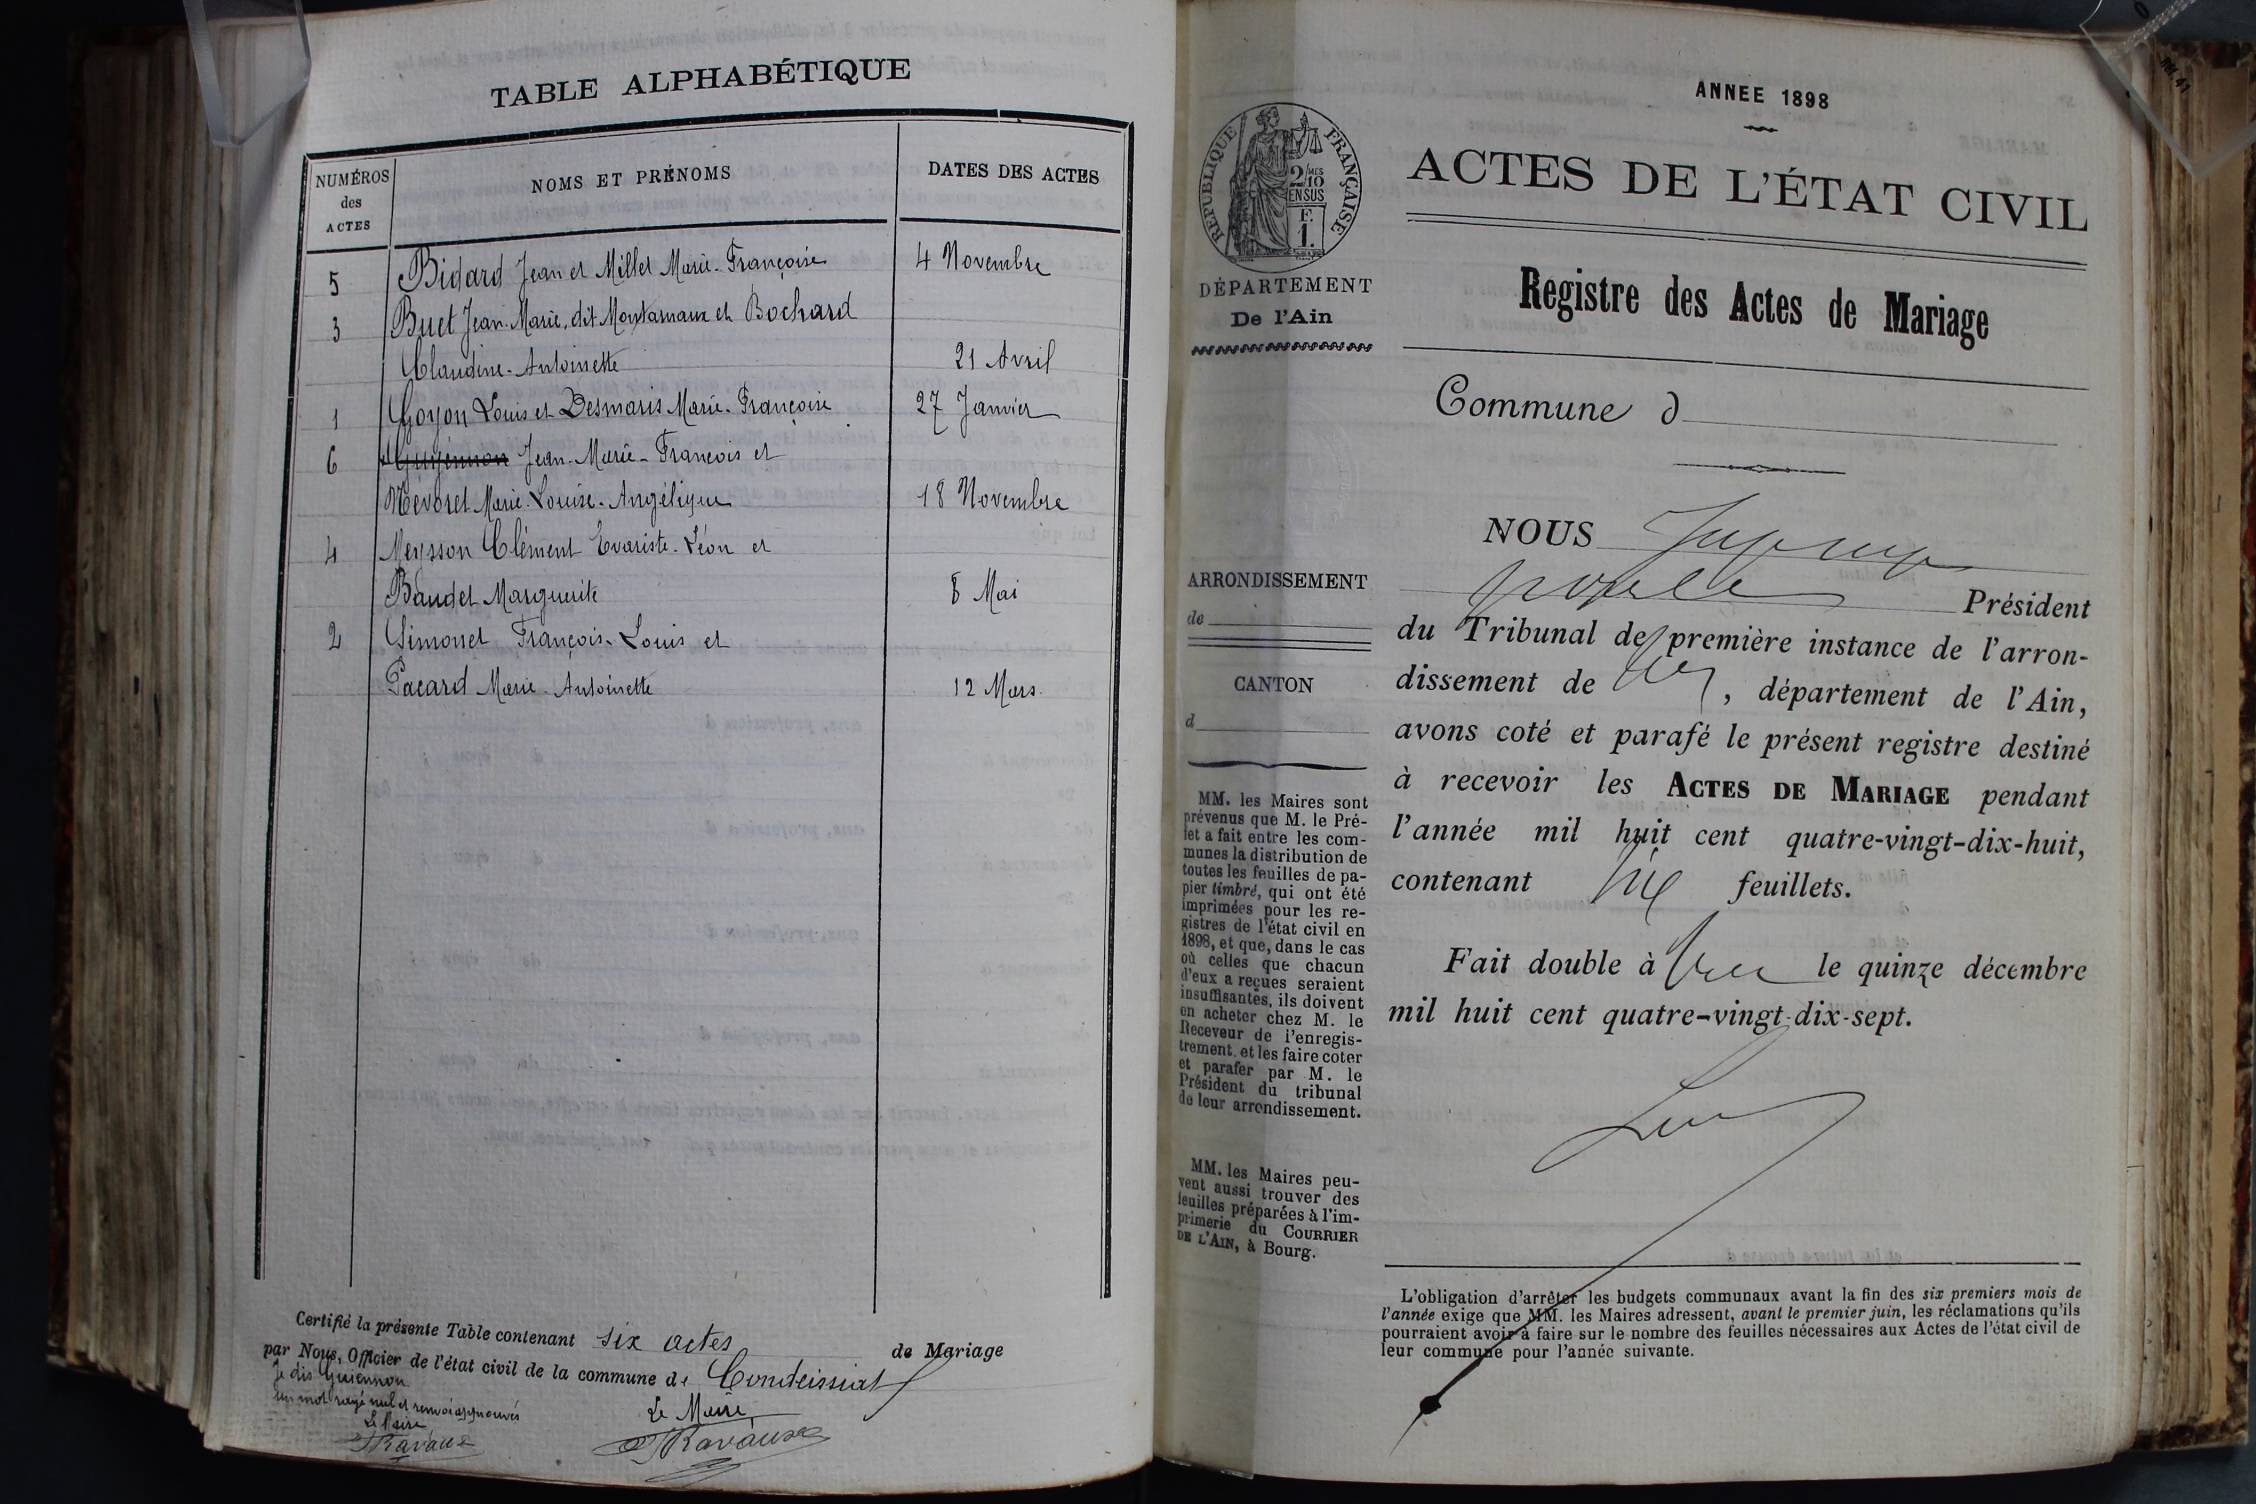 TABLE ALPHABÉTIQUE
NUMÉROS
des
ACTES
NOMS ET PRÉNOMS
DATES DES ACTES
5 Bidard Jean et Millet Marie-Françoise 4 Novembre
3 Buet Jean-Marie, dit Montarnaux et Bochard
Claudine-Antoinette 21 Avril
1 Goyon Louis et Desmaris Marie-Françoise 27 Janvier
6 Jean-Marie-François et
Mévoret Marie-Louise-Angélique 18 Novembre
4 Meysson Clément Evariste-Léon et
Baudet Marguerite 8 Mai
2 Simonet François-Louis et
Pacard Marie-Antoinette 12 Mars
Certifié la présente Table contenant six actes de Mariage
par Nous, Officier de l'état civil de la commune de Condeissiat
Je dis Guiennon
un mot rayé nul et renvoi approuvés
Le Maire
Ravaux
Le Maire
Ravaux
ANNEE 1898
RÉPUBLIQUE FRANÇAISE
2/10
EN SUS
F.
1.
ACTES DE L'ÉTAT CIVIL
DÉPARTEMENT
De l'Ain
Registre des Actes de Mariage
Commune d
NOUS
Président
du Tribunal de première instance de l'arron-
dissement de , département de l'Ain,
avons coté et parafé le présent registre destiné
à recevoir les ACTES DE MARIAGE pendant
l'année mil huit cent quatre-vingt-dix-huit,
contenant feuillets.
Fait double à le quinze décembre
mil huit cent quatre-vingt-dix-sept.
ARRONDISSEMENT
de
CANTON
d
MM. les Maires sont
prévenus que M. le Pré-
fet a fait entre les com-
munes la distribution de
toutes les feuilles de pa-
pier timbré, qui ont été
imprimées pour les re-
gistres de l'état civil en
1898, et que, dans le cas
où celles que chacun
d'eux a reçues seraient
insuffisantes, ils doivent
en acheter chez M. le
Receveur de l'enregis-
trement. et les faire coter
et parafer par M. le
Président du tribunal
de leur arrondissement.
MM. les Maires peu-
vent aussi trouver des
feuilles préparées à l'im-
primerie du COURRIER
DE L'AIN, à Bourg.
L'obligation d'arrêter les budgets communaux avant la fin des six premiers mois de
l'année exige que MM. les Maires adressent, avant le premier juin, les réclamations qu'ils
pourraient avoir à faire sur le nombre des feuilles nécessaires aux Actes de l'état civil de
leur commune pour l'année suivante.